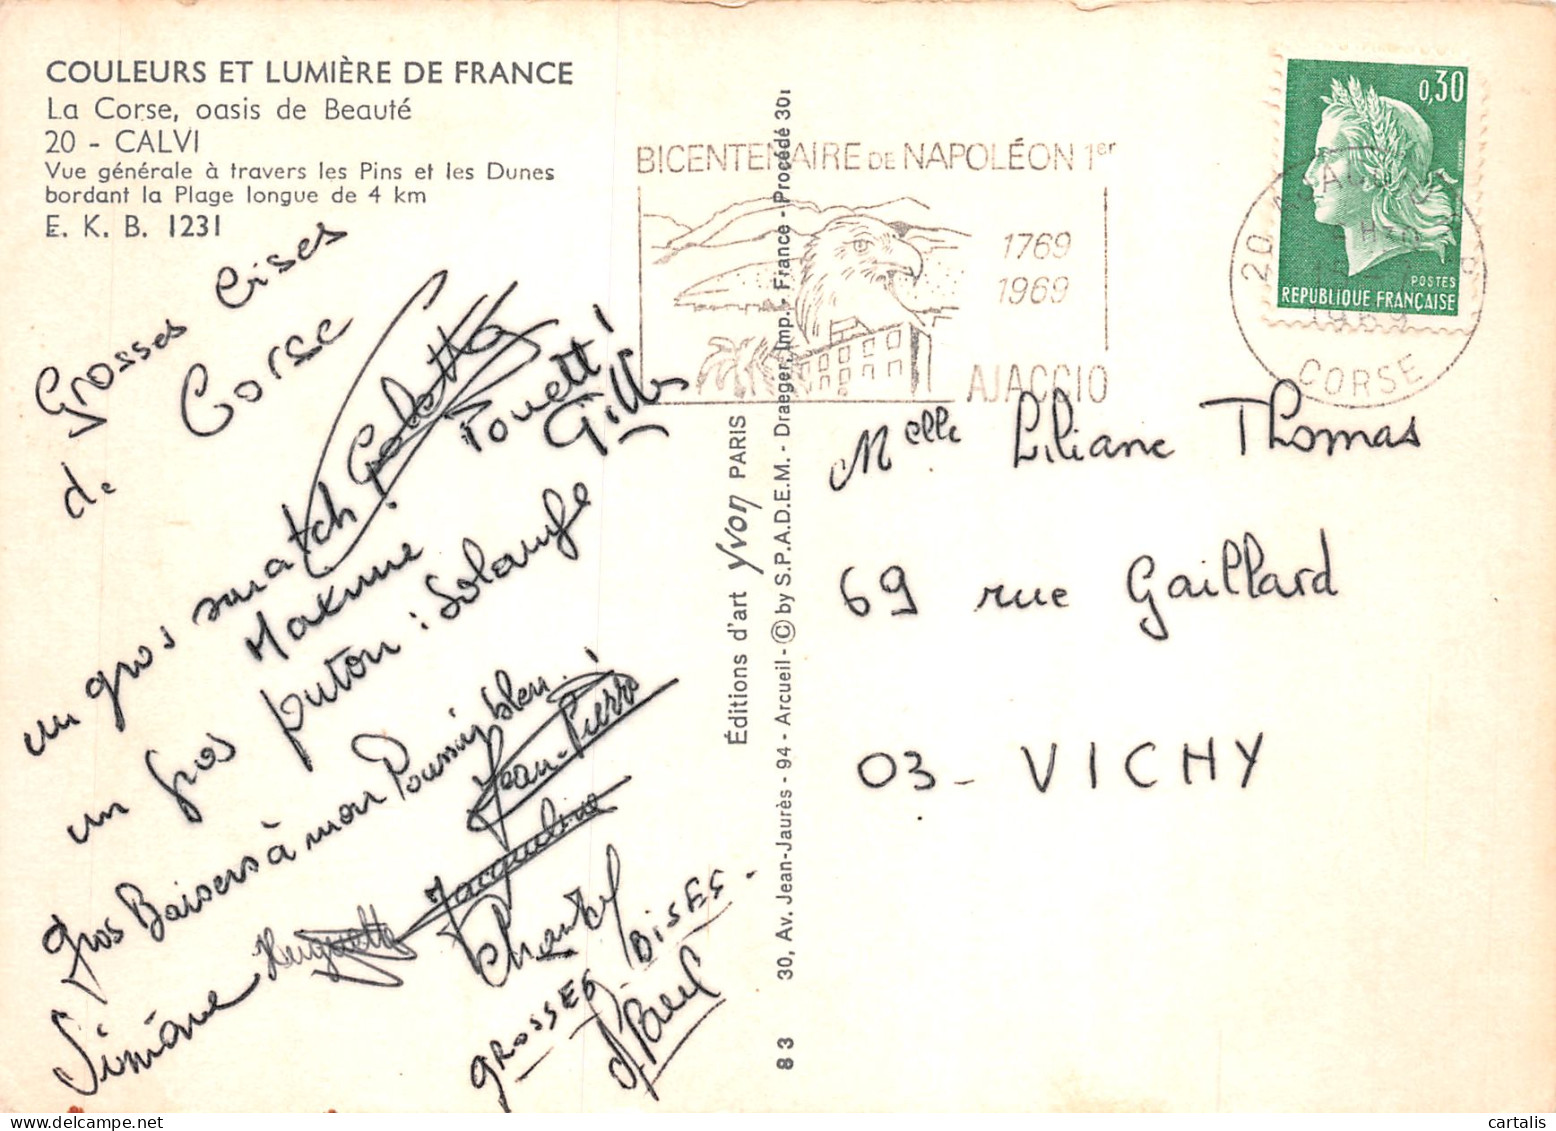 COULEURS ET LUMIÈRE DE FRANCE
La Corse, oasis de Beauté
20 - CALVI
Vue générale à travers les Pins et les Dunes
bordant la Plage longue de 4 km
E. K. B. 1231
Grosses bises
de Corse
un gros smatch
Colette
Maxime
Gilles
un gros
: Solange
gros Baisers à mon Poussin bleu.
Jean-Pierre
Jacqueline
Simone
Huguette
Chantal
GROSSES BISES -
Paul
Éditions d'art yvon PARIS
30, Av. Jean-Jaurès - 94 - Arcueil - © by S.P.A.D.E.M. - Draeger, Imp. - France - Procédé 301
83
BICENTENAIRE DE NAPOLÉON 1er
1769
1969
AJACCIO
0,30
POSTES
REPUBLIQUE FRANÇAISE
20
1969
CORSE
Melle Liliane Thomas
69 rue Gaillard
03 - VICHY
cartalis